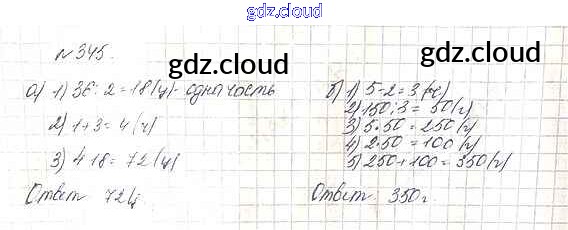 gdz.cloud
№345.
gdz.cloud
gdz.cloud
а) 1) 36 : 2 = 18 (ц) - одна часть
2) 1+3 = 4 (ч)
3) 4·18 = 72 (ц)
Ответ 72ц
б) 1) 5-2 = 3 (ч)
2) 150 : 3 = 50 (г)
3) 5·50 = 250 (г)
4) 2·50 = 100 (г)
5) 250+100 = 350 (г)
Ответ: 350г.